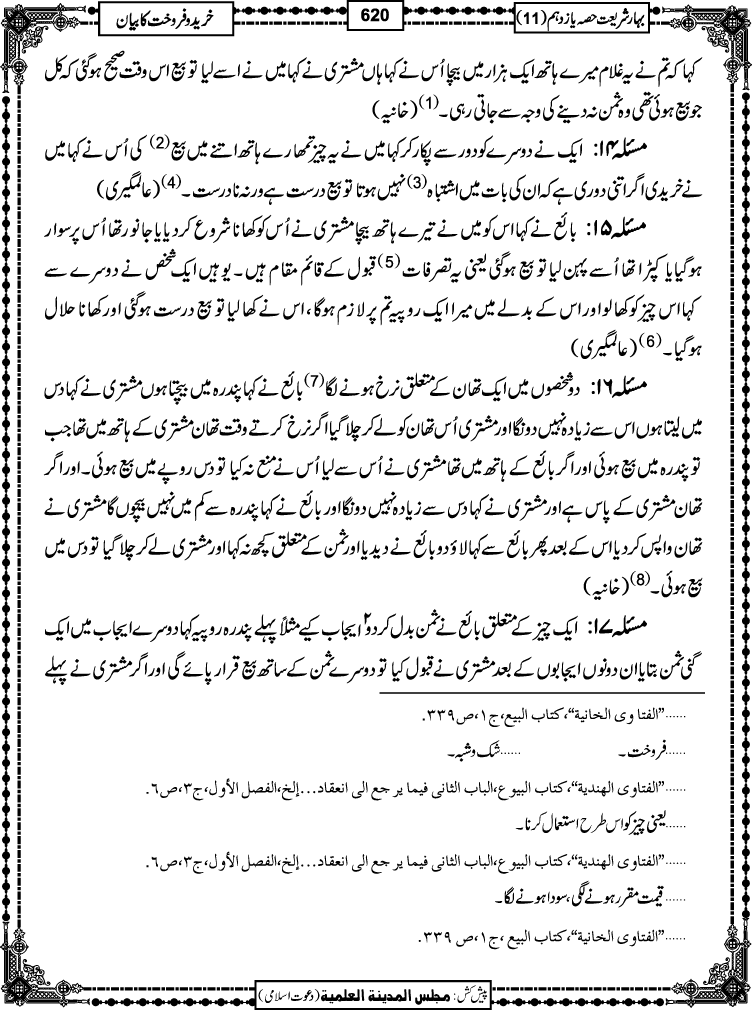 بہار شریعت حصہ یازدہم (11)
620
خرید و فروخت کا بیان
کہا کہ تم نے یہ غلام میرے ہاتھ ایک ہزار میں بیچا اُس نے کہا ہاں مشتری نے کہا میں نے اسے لیا تو بیع اس وقت صحیح ہوگئی کہ کل
جو بیع ہوئی تھی وہ ثمن نہ دینے کی وجہ سے جاتی رہی۔ (1) (خانیہ)
مسئلہ ۱۴: ایک نے دوسرے کو دور سے پکار کر کہا میں نے یہ چیز تمھارے ہاتھ اتنے میں بیع (2) کی اُس نے کہا میں
نے خریدی اگر اتنی دوری ہے کہ ان کی بات میں اشتباہ (3) نہیں ہوتا تو بیع درست ہے ورنہ نادرست۔ (4) (عالمگیری)
مسئلہ ۱۵: بائع نے کہا اس کو میں نے تیرے ہاتھ بیچا مشتری نے اُس کو کھانا شروع کردیا یا جانور تھا اُس پر سوار
ہوگیا یا کپڑا تھا اُسے پہن لیا تو بیع ہوگئی یعنی یہ تصرفات (5) قبول کے قائم مقام ہیں۔ یوہیں ایک شخص نے دوسرے سے
کہا اس چیز کو کھالو اور اس کے بدلے میں میرا ایک روپیہ تم پر لازم ہوگا، اس نے کھالیا تو بیع درست ہوگئی اور کھانا حلال
ہوگیا۔ (6) (عالمگیری)
مسئلہ ۱۶: دو شخصوں میں ایک تھان کے متعلق نرخ ہونے لگا (7) بائع نے کہا پندرہ میں بیچتا ہوں مشتری نے کہا دس
میں لیتا ہوں اس سے زیادہ نہیں دونگا اور مشتری اُس تھان کو لے کر چلا گیا اگر نرخ کرتے وقت تھان مشتری کے ہاتھ میں تھا جب
تو پندرہ میں بیع ہوئی اور اگر بائع کے ہاتھ میں تھا مشتری نے اُس سے لیا اُس نے منع نہ کیا تو دس روپے میں بیع ہوئی۔ اور اگر
تھان مشتری کے پاس ہے اور مشتری نے کہا دس سے زیادہ نہیں دونگا اور بائع نے کہا پندرہ سے کم میں نہیں بیچوں گا مشتری نے
تھان واپس کردیا اس کے بعد پھر بائع سے کہا لاؤ دو بائع نے دیدیا اور ثمن کے متعلق کچھ نہ کہا اور مشتری لے کر چلا گیا تو دس میں
بیع ہوئی۔ (8) (خانیہ)
مسئلہ ۱۷: ایک چیز کے متعلق بائع نے ثمن بدل کر دو۲ ایجاب کیے مثلاً پہلے پندرہ روپیہ کہا دوسرے ایجاب میں ایک
گنی ثمن بتایا ان دونوں ایجابوں کے بعد مشتری نے قبول کیا تو دوسرے ثمن کے ساتھ بیع قرار پائے گی اور اگر مشتری نے پہلے
......”الفتاوی الخانیة“، کتاب البیع، ج۱، ص۳۳۹.
......فروخت۔ ......شک و شبہ۔
......”الفتاوی الهندیة“، کتاب البیوع، الباب الثانی فیما یرجع الی انعقاد...إلخ، الفصل الأول، ج۳، ص۶.
......یعنی چیز کو اس طرح استعمال کرنا۔
......”الفتاوی الهندیة“، کتاب البیوع، الباب الثانی فیما یرجع الی انعقاد...إلخ، الفصل الأول، ج۳، ص۶.
......قیمت مقرر ہونے لگی، سودا ہونے لگا۔
......”الفتاوی الخانیة“، کتاب البیع، ج۱، ص ۳۳۹.
پیش کش: مجلس المدینۃ العلمیۃ (دعوت اسلامی)